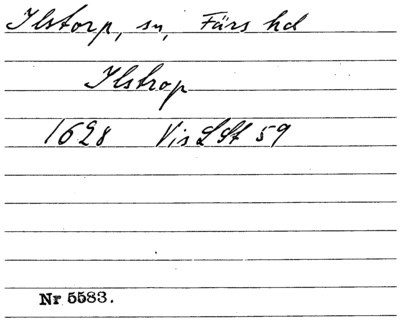 Ilstorp, sn, Färs hd
Ilstrop
1628 Vis LSt 59
Nr 5583.